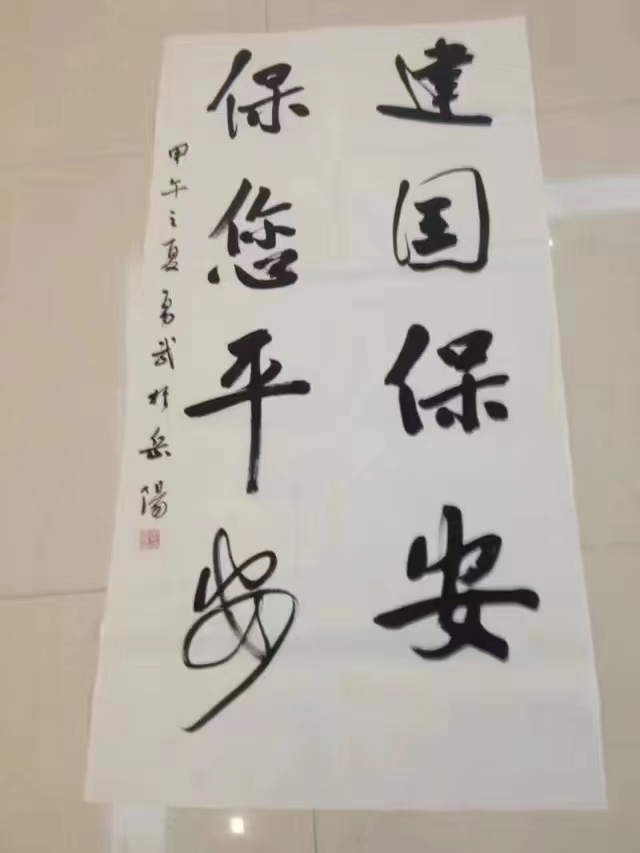 建国保安
保您平安
甲午之夏勇武於岳阳